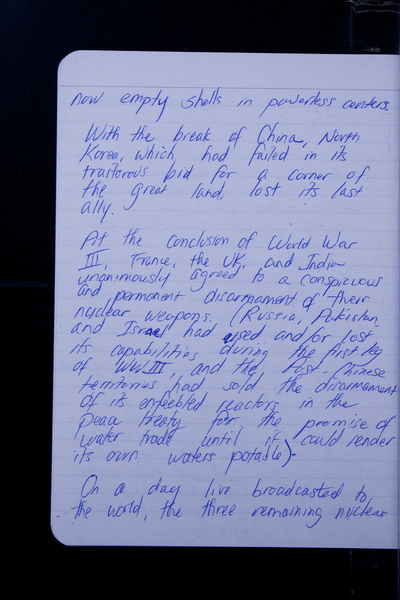 now empty shells in powerless centers.
With the break of China, North
Korea, which had failed in its
traitorous bid for a corner of
the great land, lost its last
ally.
At the conclusion of World War
III, France, the UK, and India
unanimously agreed to a conspicuous
and permanent disarmament of their
nuclear weapons. (Russia, Pakistan,
and Israel had used and/or lost
its capabilities during the first leg
of WWIII, and the Post-Chinese
territories had sold the disarmament
of its enfeebled reactors in the
peace treaty for the promise of
water trade until it could render
its own waters potable).
On a day live broadcasted to
the world, the three remaining nuclear